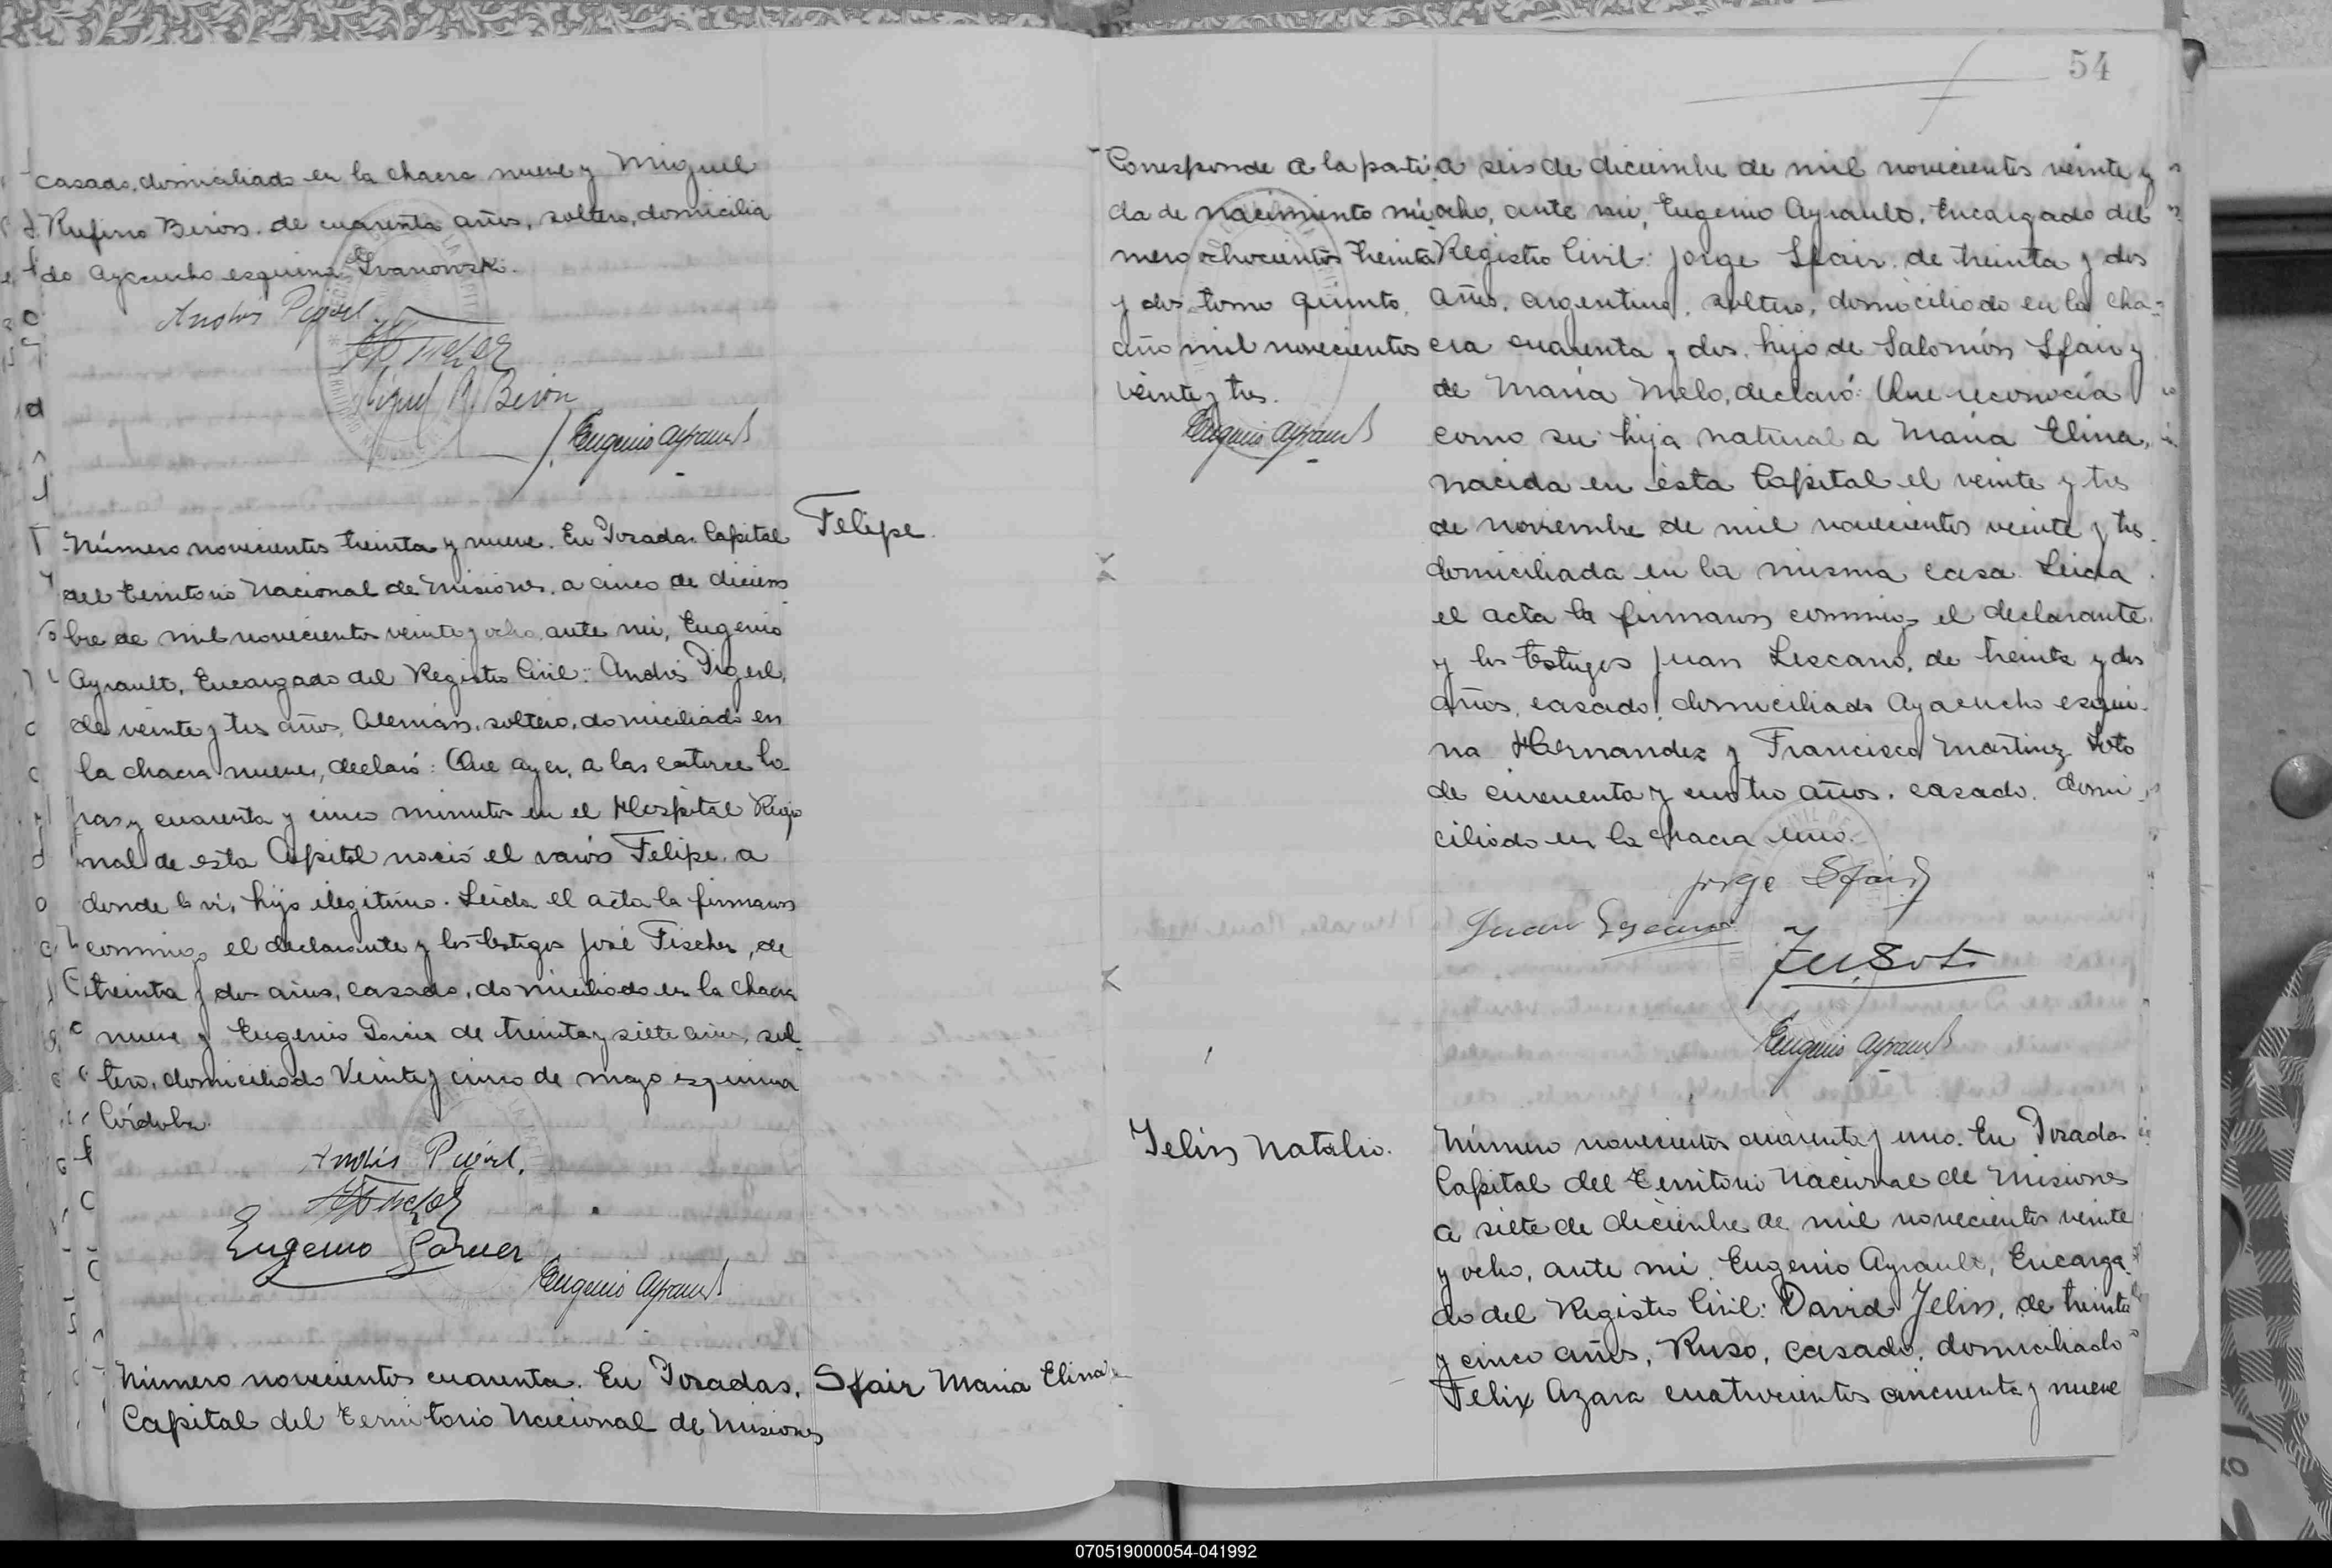 casado, domiciliado en la chacra nueve y Miguel
Rufino Beron, de cuarenta años, soltero, domicilia
do Ayacucho esquina Ivanowski.
Andrés Pigerl.
Miguel R. Beron
Eugenio Ayrault
Felipe.
Número novecientos treinta y nueve. En Posadas Capital
del Territorio Nacional de Misiones, a cinco de diciem
bre de mil novecientos veinte y ocho, ante mi, Eugenio
Ayrault, Encargado del Registro Civil: Andrés Pigerl,
de veinte y tres años, Alemán, soltero, domiciliado en
la chacra nueve, declaró: Que ayer, a las catorce ho
ras y cuarenta y cinco minutos en el Hospital Regio
nal de esta Capital nació el varón Felipe, a
donde lo vi, hijo ilegitimo. Leida el acta la firmaron
conmigo el declarante y los testigos José Fischer, de
treinta y dos años, casado, domiciliado en la chacra
nueve y Eugenio de treinta y siete años, sol
tero, domiciliado Veinte y cinco de mayo esquina
Córdoba.
Andrés Pigerl.
Eugenio
Eugenio Ayrault
Sfair Maria Elina
Número novecientos cuarenta. En Posadas,
Capital del Territorio Nacional de Misiones
54
Corresponde a la parti
da de nacimiento nú
mero ochocientos treinta
y dos tomo quinto,
año mil novecientos
veinte y tres.
Eugenio Ayrault
a seis de diciembre de mil novecientos veinte y
ocho, ante mi, Eugenio Ayrault, Encargado del
Registro Civil: Jorge Sfair, de treinta y dos
años, argentino, soltero, domiciliado en la cha-
cra cuarenta y dos, hijo de Salomón Sfair y
de María Melo, declaró: Que reconocía
como su hija natural a María Elina,
nacida en ésta Capital el veinte y tres
de noviembre de mil novecientos veinte y tres
domiciliada en la misma casa. Leida
el acta la firmaron conmigo el declarante
y los testigos Juan Lescano, de treinta y dos
años, casado, domiciliado Ayacucho esqui-
na Hernandez y Francisco Martinez Soto
de cincuenta y cuatro años, casado, domi
ciliado en la chacra uno.
Jorge Sfair
Juan Lescano
F M Soto
Eugenio Ayrault
Jelin Natalio.
Número novecientos cuarenta y uno. En Posadas
Capital del Territorio Nacional de Misiones
a siete de diciembre de mil novecientos veinte
y ocho, ante mi, Eugenio Ayrault, Encarga
do del Registro Civil: David Jelin, de treinta
y cinco años, Ruso, casado, domiciliado
Felix Azara cuatrocientos cincuenta y nueve
070519000054-041992